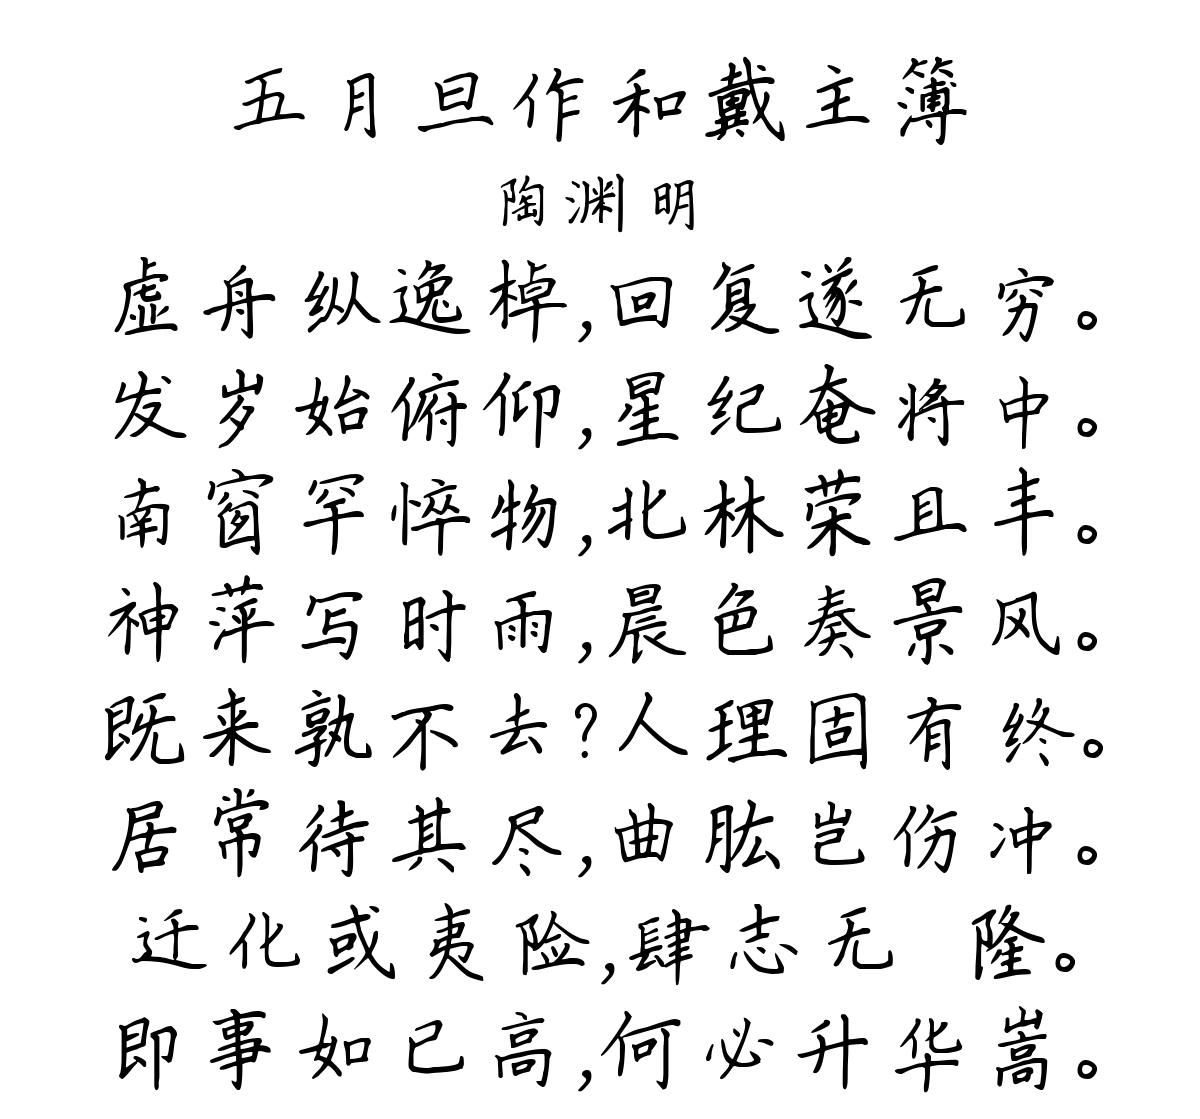 五月旦作和戴主簿
陶渊明
虚舟纵逸棹,回复遂无穷。
发岁始俯仰,星纪奄将中。
南窗罕悴物,北林荣且丰。
神萍写时雨,晨色奏景风。
既来孰不去?人理固有终。
居常待其尽,曲肱岂伤冲。
迁化或夷险,肆志无 隆。
即事如已高,何必升华嵩。